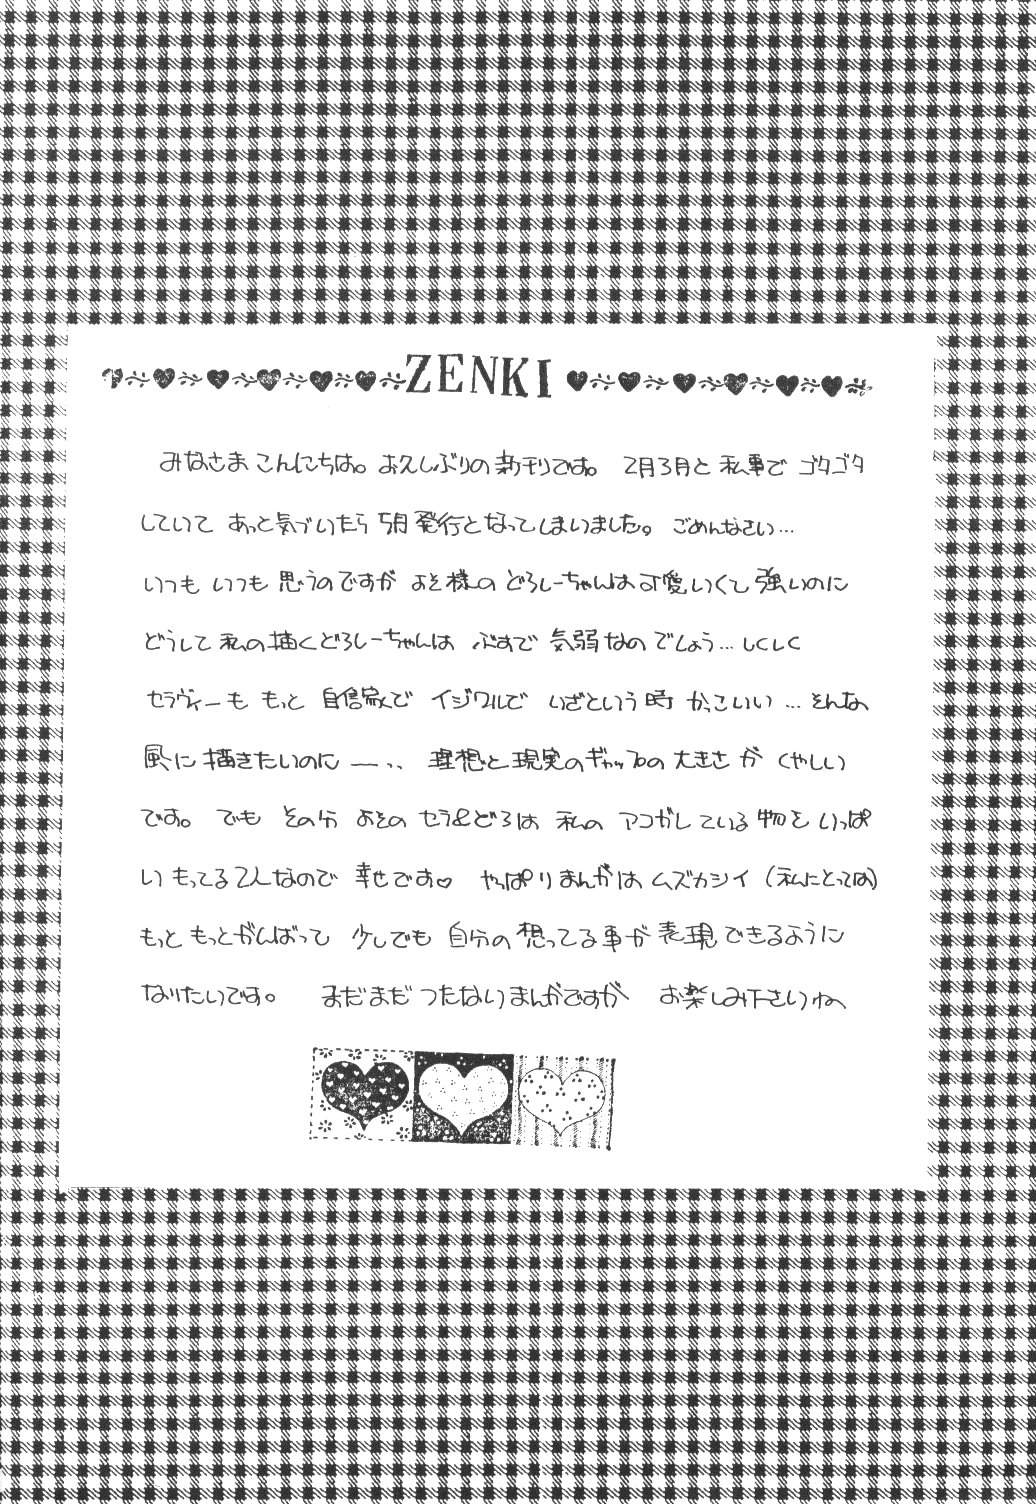 ZENKI
みなさま こんにちは。お久しぶりの新刊です。 2月3月と 私事で ゴタゴタ
していて あっと気づいたら 5月発行となってしまいました。 ごめんなさい…
いつも いつも 思うのですが よそ様の どろしーちゃんは 可愛いくて 強いのに
どうして 私の描くどろしーちゃんは ぶすで 気弱なの でしょう… しくしく
セラヴィーも もっと 自信家で イジワルで いざという時 かっこいい … そんな
風に 描きたいのに ―っ、、 理想と現実のギャップの 大きさ が くやしい
です。 でも その分 よその セラ&どろは 私の アコガレている物を いっぱ
い もってる 2人なので 幸せです♡ やっぱりまんがは ムズカシイ (私にとっては)
もっと もっとがんばって 少しでも 自分の想ってる事が 表現できるように
なりたいです。 まだまだ つたないまんがですが お楽しみ下さいね